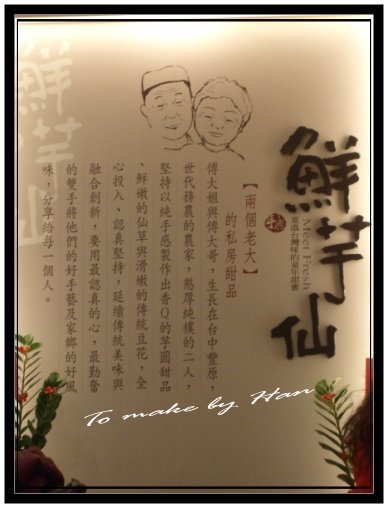 鮮芋仙
Meet Fresh
重溫台灣味的童年甜蜜
【兩個老大】
的私房甜品
傅大姐與傅大哥，生長在台中豐原，
世代務農的農家，憨厚純樸的二人，
堅持以純手感製作出香Q的芋圓甜品
、鮮嫩的仙草與滑嫩的傳統豆花，全
心投入、認真堅持，延續傳統美味與
融合創新，要用最認真的心，最勤奮
的雙手將他們的好手藝及家鄉的好風
味，分享給每一個人。
鮮芋仙
To make by Han